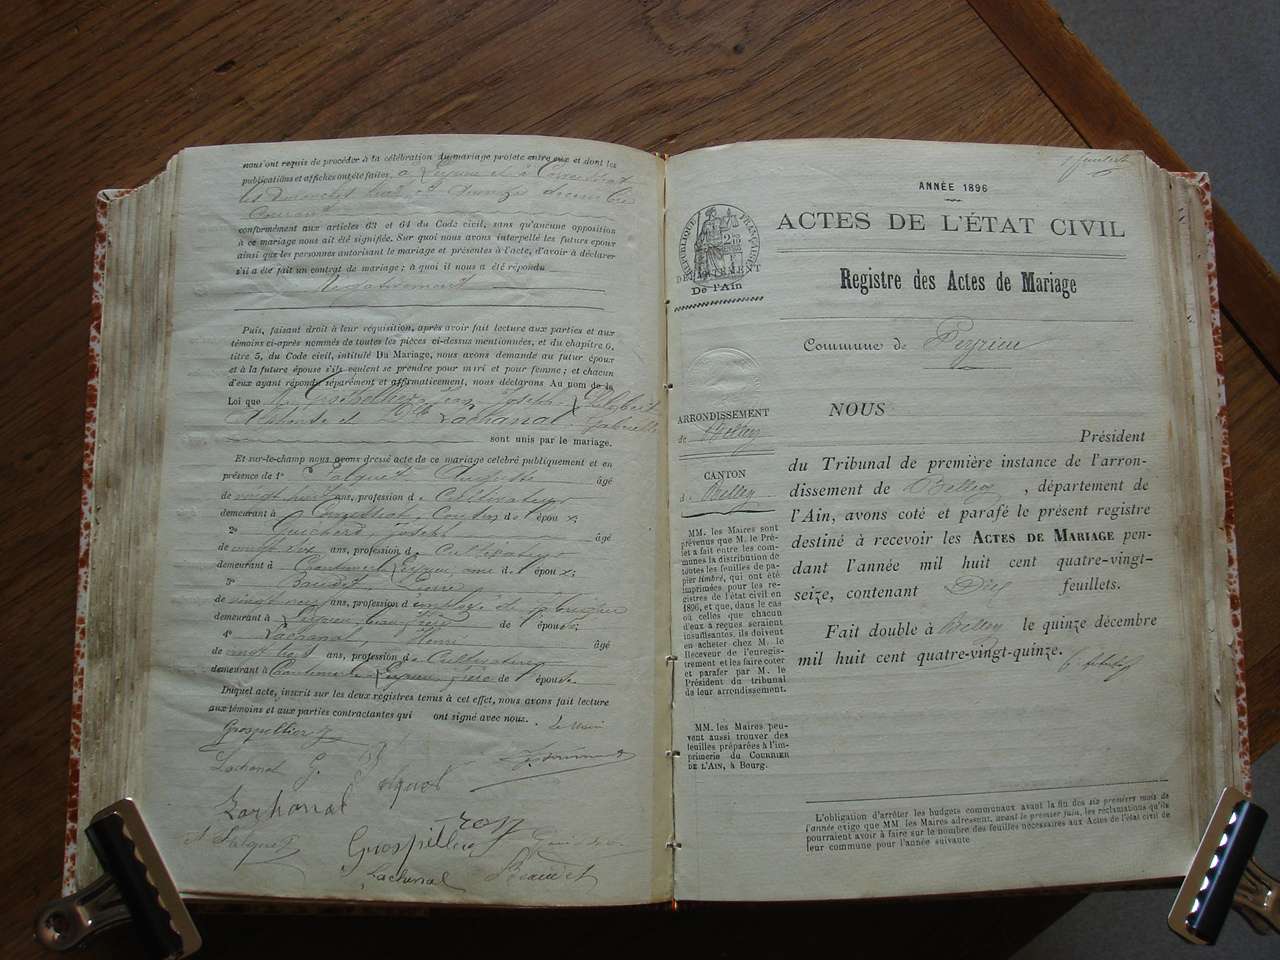 nous ont requis de procéder à la célébration du mariage projeté entre eux et dont les
publications et affiches ont été faites, à Peyrieu et à
les Dimanches huit et quinze décembre
courant
conformément aux articles 63 et 64 du Code civil, sans qu'aucune opposition
à ce mariage nous ait été signifiée. Sur quoi nous avons interpellé les futurs époux
ainsi que les personnes autorisant le mariage et présentes à l'acte, d'avoir à déclarer
s'il a été fait un contrat de mariage ; à quoi il nous a été répondu
Négativement
Puis, faisant droit à leur réquisition, après avoir fait lecture aux parties et aux
témoins ci-après nommés de toutes les pièces ci-dessus mentionnées, et du chapitre 6,
titre 5, du Code civil, intitulé Du Mariage, nous avons demandé au futur époux
et à la future épouse s'ils veulent se prendre pour mari et pour femme ; et chacun
d'eux ayant répondu séparément et affirmativement, nous déclarons Au nom de la
Loi que Mr Grospellier Jean Joseph
Alphonse et Dlle Lachanal
sont unis par le mariage.
Et sur-le-champ nous avons dressé acte de ce mariage célébré publiquement et en
présence de 1° Jalquet Auguste âgé
de vingt huit ans, profession de Cultivateur
demeurant à Conzieu, Cousin de l'époux ;
2° Guichard Joseph âgé
de ans, profession de Cultivateur
demeurant à Chantemerle Peyrieu, ami de l'époux ;
3° Baudet Pierre
de vingt neuf ans, profession d'employé de
demeurant à Peyrieu beau frère de l'épouse ;
4° Lachanal Henri âgé
de vingt trois ans, profession de Cultivateur
demeurant à Chantemerle Peyrieu frère de l'épouse.
Duquel acte, inscrit sur les deux registres tenus à cet effet, nous avons fait lecture
aux témoins et aux parties contractantes qui ont signé avec nous. Le Maire
Grospellier J
Lachanal G. Jalquet
Lachanal
A Jalquet Grospellier
Lachanal Beaudet
ANNÉE 1896
ACTES DE L'ÉTAT CIVIL
RÉPUBLIQUE FRANÇAISE
DÉPARTEMENT
De l'Ain
Registre des Actes de Mariage
Commune de Peyrieu
ARRONDISSEMENT
de Belley
CANTON
de Belley
MM. les Maires sont
prévenus que M. le Pré-
fet a fait entre les com-
munes la distribution de
toutes les feuilles de pa-
pier timbré, qui ont été
imprimées pour les re-
gistres de l'état civil en
1896, et que, dans le cas
où celles que chacun
d'eux a reçues seraient
insuffisantes, ils doivent
en acheter chez M. le
Receveur de l'enregis-
trement et les faire coter
et parafer par M. le
Président du tribunal
de leur arrondissement.
MM. les Maires peu-
vent aussi trouver des
feuilles préparées à l'im-
primerie du COURRIER
DE L'AIN, à Bourg.
NOUS
Président
du Tribunal de première instance de l'arron-
dissement de Belley, département de
l'Ain, avons coté et parafé le présent registre
destiné à recevoir les ACTES DE MARIAGE pen-
dant l'année mil huit cent quatre-vingt-
seize, contenant Dix feuillets.
Fait double à Belley le quinze décembre
mil huit cent quatre-vingt-quinze.
L'obligation d'arrêter les budgets communaux avant la fin des six premiers mois de
l'année exige que MM les Maires adressent, avant le premier juin, les réclamations qu'ils
pourraient avoir à faire sur le nombre des feuilles nécessaires aux Actes de l'état civil de
leur commune pour l'année suivante